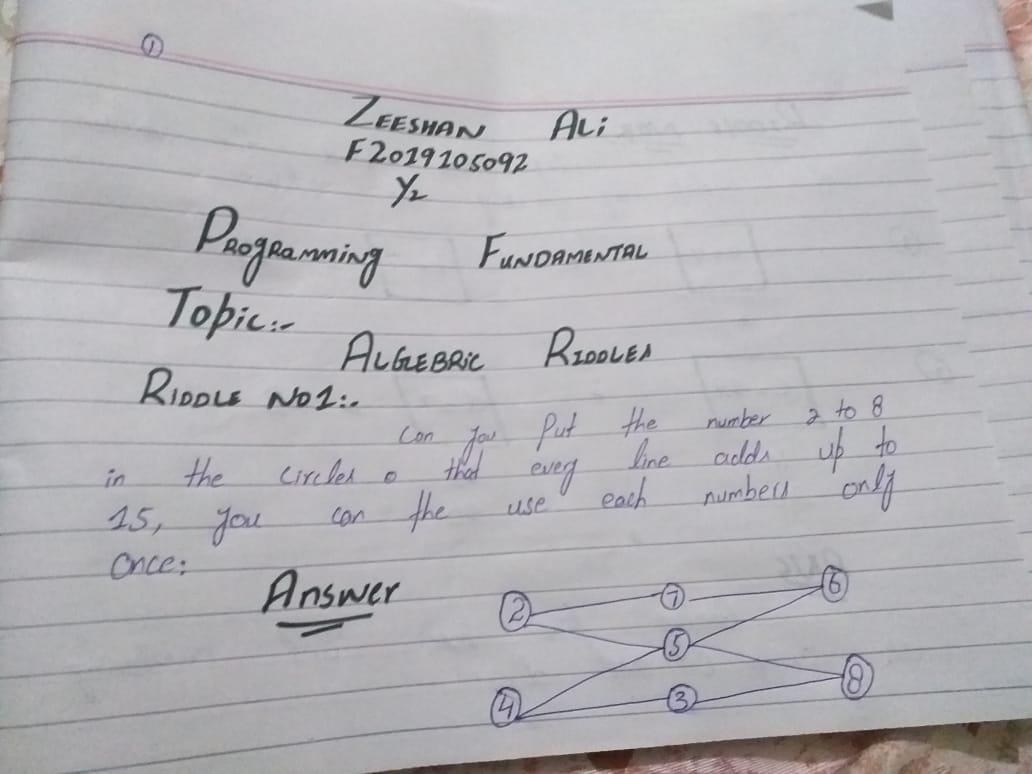 ①
ZEESHAN ALi
F2019205092
Y2
PROgRAmmiNg FUNDAMENTAL
Topic:-
ALGEBRiC RIDDLES
RIDDLE NO1:-
Can you Put the number 2 to 8
in the circles o that every line adds up to
15, you can the use each numbers only
Once:
Answer
2 7 6
5
4 3 8